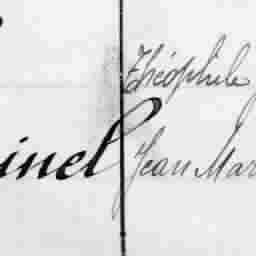 Théophile
inel Jean Mar